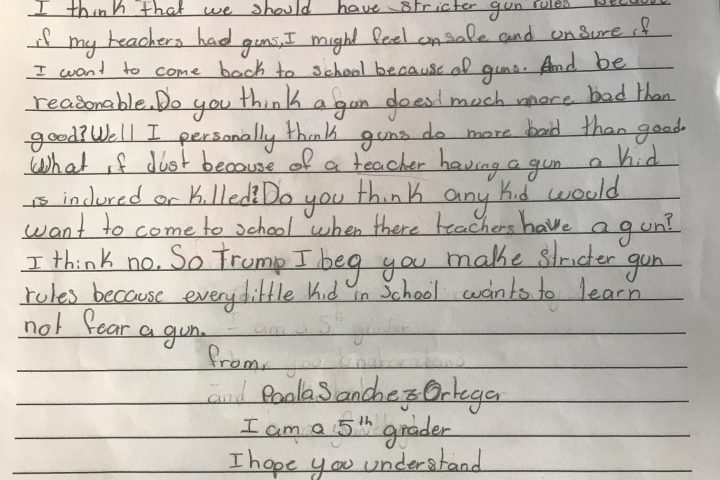 I think that we should have stricter gun rules because
if my teachers had guns, I might feel unsafe and unsure if
I want to come back to school because of guns. And be
reasonable. Do you think a gun does much more bad than
good? Well I personally think guns do more bad than good.
What if dust because of a teacher having a gun a kid
is indured or killed? Do you think any kid would
want to come to school when there teachers have a gun?
I think no. So Trump I beg you make stricter gun
rules because every little kid in school wants to learn
not fear a gun.
from,
and Paola Sanchez Ortega
I am a 5th grader
I hope you understand